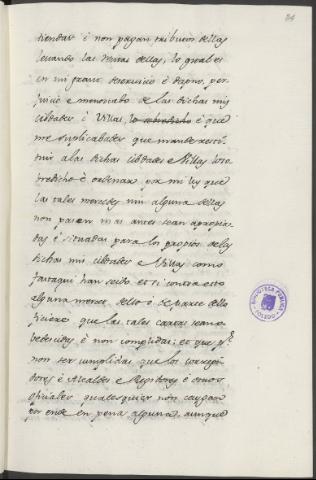 84
tiendas é non pagan tributos dellas
levando las rentas dellas, lo qual es
en mi grant deservicio é dapno, per-
juicio e menoscabo de las dichas mis
cibdades é Villas lo sobredicho é que
me suplicabades que mandase resti-
tuir a las dichas cibdades e Villas lo so-
bredicho é ordenar por mi ley que
las tales mercedes nin alguna dellas
non pasen mas antes sean apropia-
das é situadas para los propios de las
dichas mis cibdades e Villas como
fasta aqui han seido et si contra esto
alguna merced dello é de parte dello
ficiere que las tales cartas sean o-
bedecidas é non complidas; et que por
non ser cumplidas que los corregi-
dores é Alcaldes e Regidores é otros
oficiales qualesquier non caygan
por ende en pena alguna, aunque
BIBLIOTECA PÚBLICA
TOLEDO